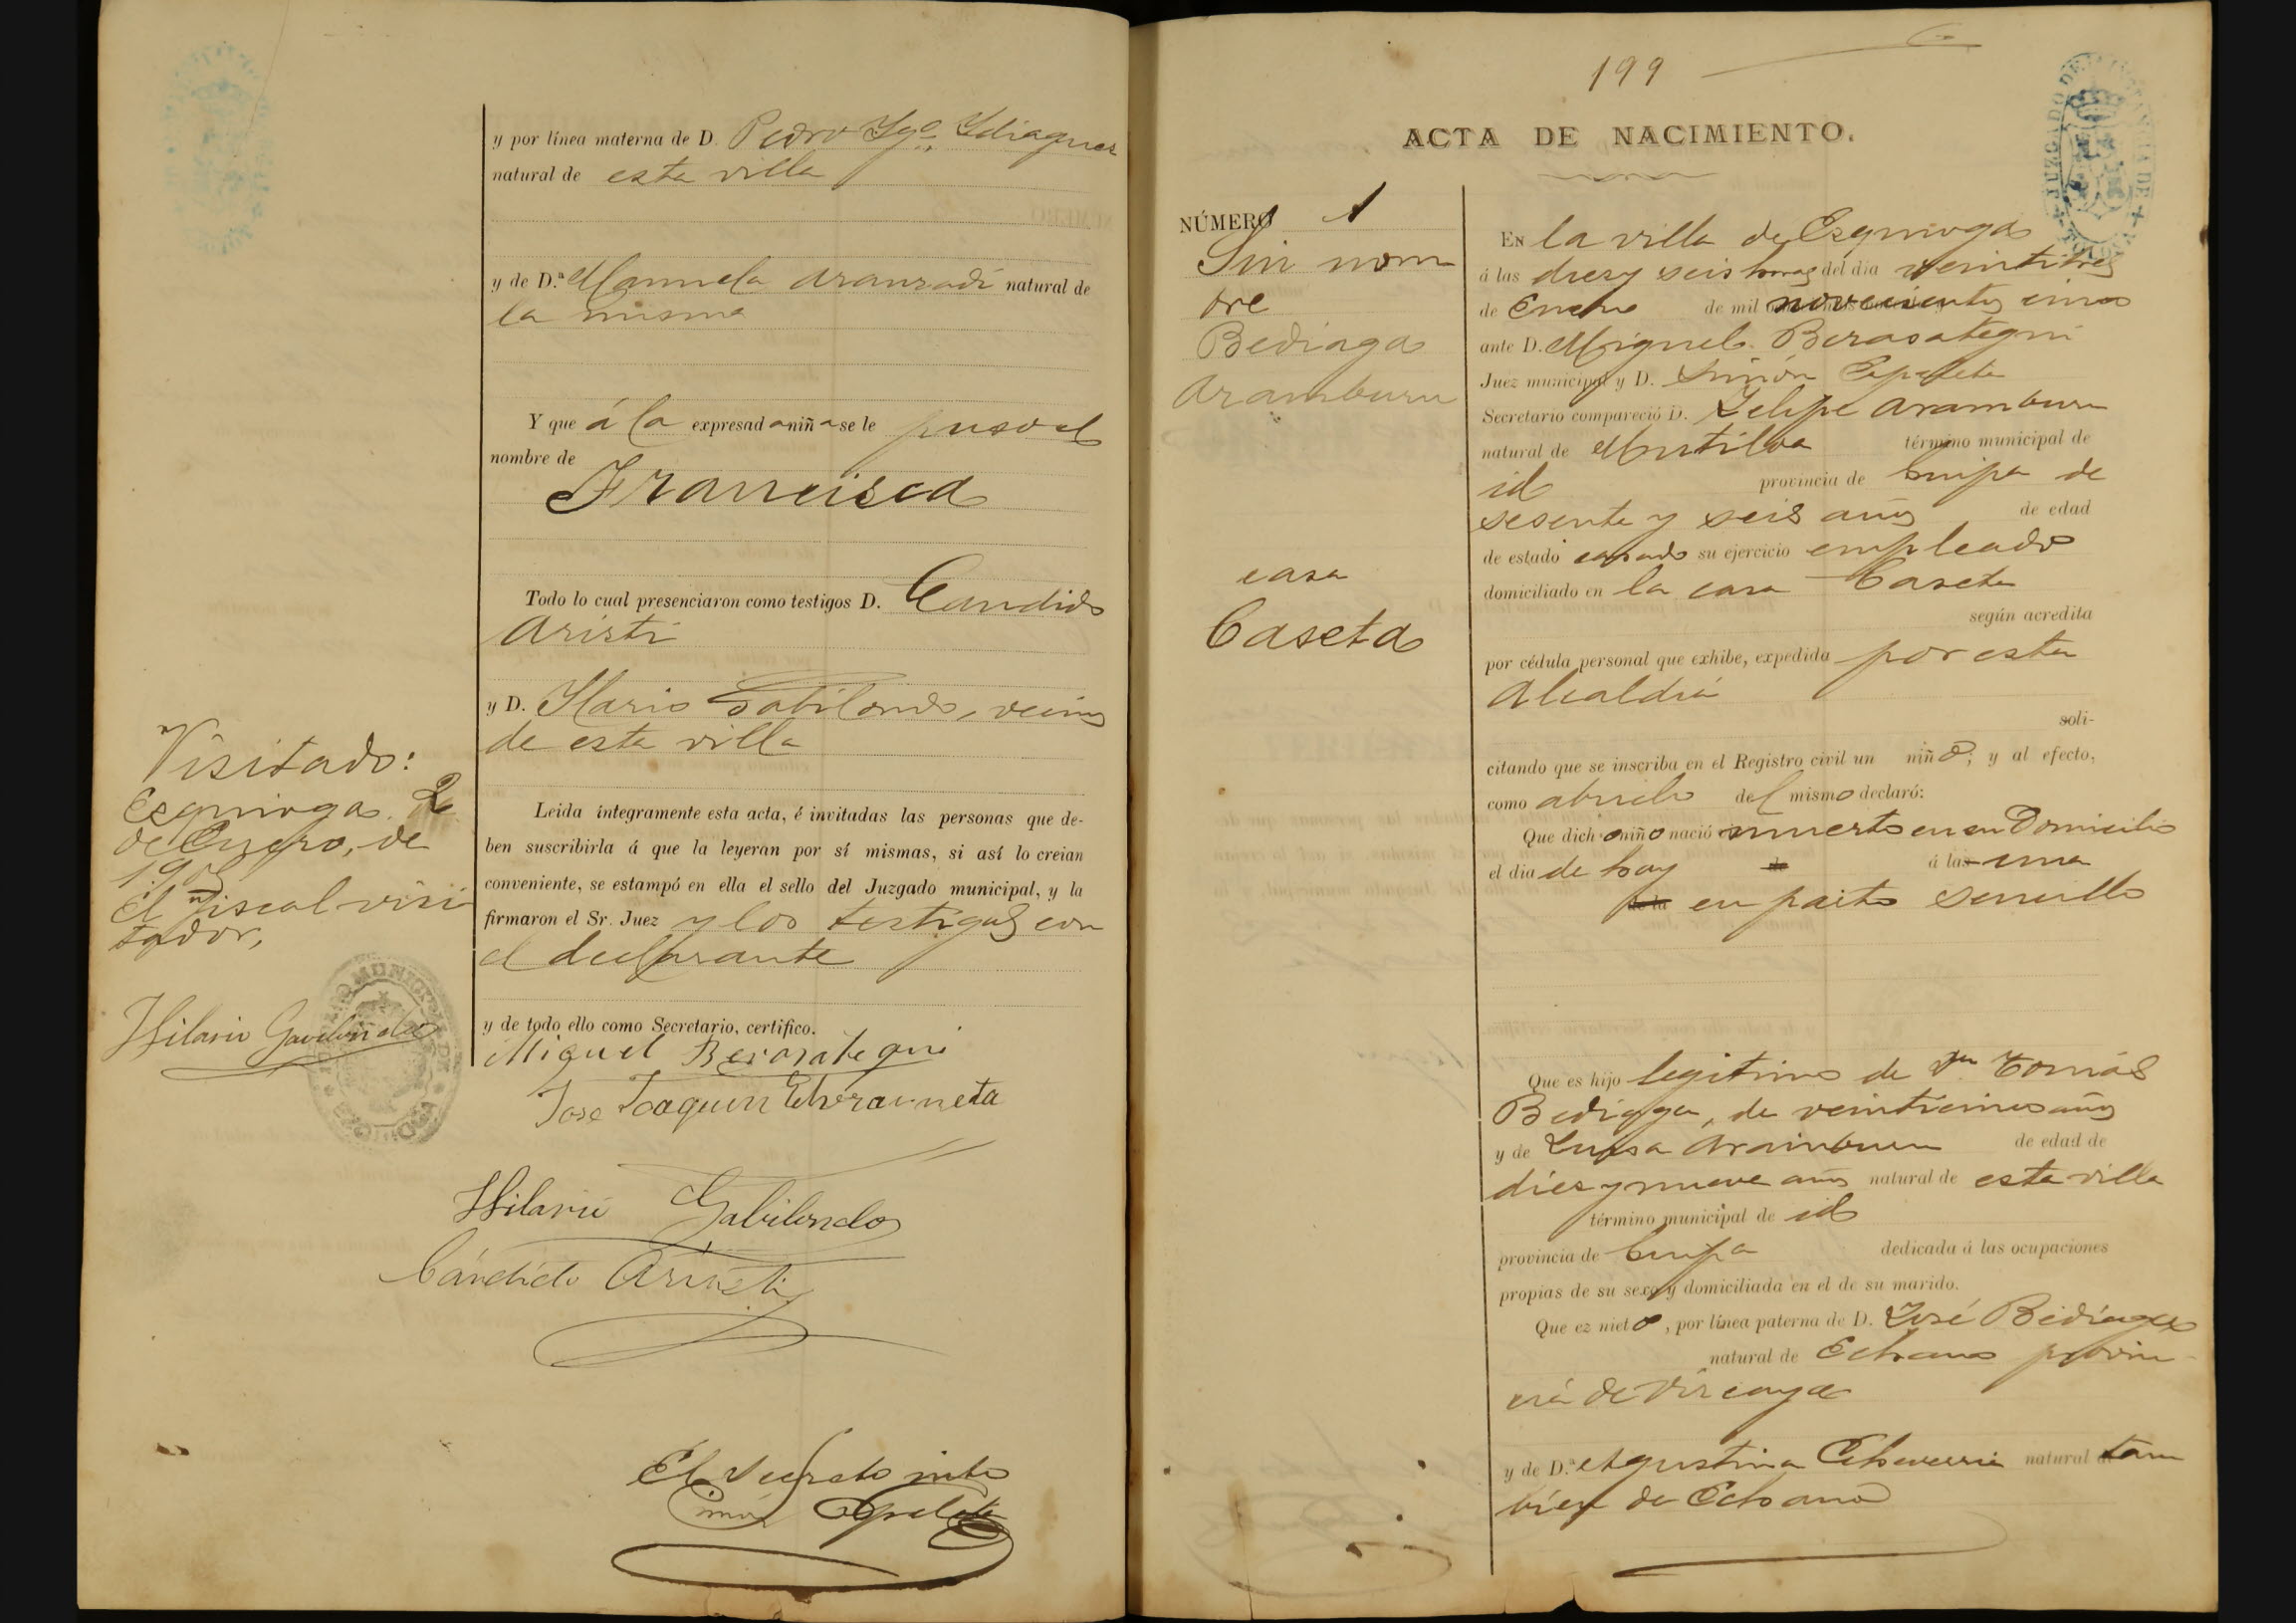 y por línea materna de D. Pedro Ygº. Ydiaquez
natural de esta villa
y de D.ª Manuela Aranzadi natural de
la misma
Y que á la expresada niña se le puso el
nombre de
Francisca
Todo lo cual presenciaron como testigos D. Candido
Aristi
y D. Ylario Gabilondo, vecinos
de esta villa
Leida íntegramente esta acta, é invitadas las personas que de-
ben suscribirla á que la leyeran por sí mismas, si así lo creian
conveniente, se estampó en ella el sello del Juzgado municipal, y la
firmaron el Sr. Juez y los testigos con
el declarante
y de todo ello como Secretario, certifico.
Miguel Berasategui
Jose Joaquin Echezarreta
Hilario Gabilondo
Cándido Aristi
El Secretº intº
Simón Apalat
Visitado:
Ezquioga 2
de Enero, de
El fiscal visi
tador,
Hilario Gavilondo
199
ACTA DE NACIMIENTO.
NÚMERO 1
Sin nom
bre
Bediaga
Aramburu
casa
Caseta
JUZGADO DE
En la villa de Ezquioga
á las diez y seis horas del dia veintitres
de Enero de mil novecientos cinco
ante D. Miguel Berasategui
Juez municipal y D. Simón
Secretario compareció D. Felipe Aramburu
natural de Mutiloa término municipal de
id provincia de Guipa de
sesenta y seis años de edad
de estado casado su ejercicio empleado
domiciliado en la casa Caseta
según acredita
por cédula personal que exhibe, expedida por esta
Alcaldía
soli-
citando que se inscriba en el Registro civil un niño; y al efecto,
como abuelo del mismo declaró:
Que dicho niño nació muerto en su Domicilio
el dia de hoy de á las una
de la en parto sencillo
Que es hijo legitimo de Dn Tomás
Bediaga, de veinticinco años
y de Luisa Aramburu de edad de
diez y nueve años natural de esta villa
término municipal de id
provincia de Guipa dedicada á las ocupaciones
propias de su sexo y domiciliada en el de su marido.
Que ez nieto, por línea paterna de D. José Bediaga
natural de Echano provin-
cia de Vizcaya
y de D.ª Agustina Echeverria natural tam
bien de Echano